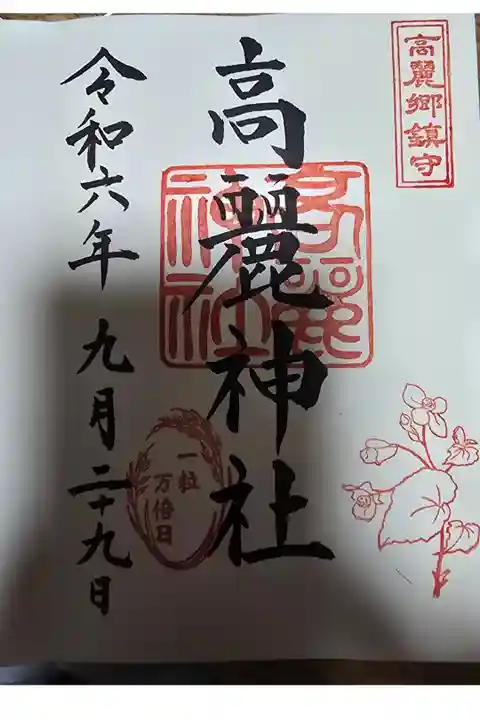 高麗郷鎮守
高麗神社
高麗
神社
一粒
万倍日
令和六年 九月二十九日